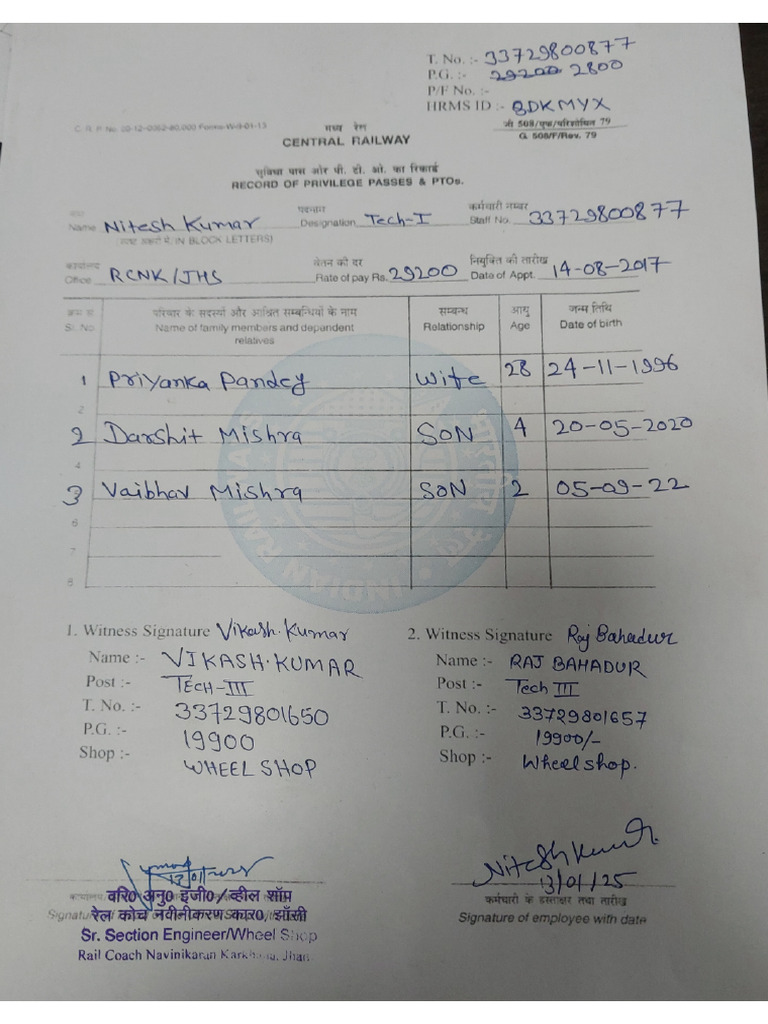 T. No. :- 33729800877
P.G. :- 29200 2800
P/F No. :-
HRMS ID :- BDKMYX
C. R. P. No. 20-12-0062-60,000 Forms-W-9-01-13
मध्य रेल
CENTRAL RAILWAY
जी 508/एफ/परिशोधित 79
G. 508/F/Rev. 79
सुविधा पास ओर पी. टी. ओ. का रिकार्ड
RECORD OF PRIVILEGE PASSES & PTOs.
नाम पदनाम कर्मचारी नम्बर
Name Nitesh Kumar Designation Tech-I Staff No. 33729800877
(स्पष्ट अक्षरों में, IN BLOCK LETTERS)
कार्यालय वेतन की दर नियुक्ति की तारीख
Office RCNK/JHS Rate of pay Rs. 29200 Date of Appt. 14-08-2017
क्रम सं. परिवार के सदस्यों और आश्रित सम्बन्धियों के नाम सम्बन्ध आयु जन्म तिथि
Sl. No. Name of family members and dependent relatives Relationship Age Date of birth
1 Priyanka Pandey Wife 28 24-11-1996
2
2 Darshit Mishra SON 4 20-05-2020
4
3 Vaibhav Mishra SON 2 05-09-22
6
7
8
INDIAN RAILWAYS
भारतीय रेल
1. Witness Signature Vikash.Kumar
Name :- VIKASH.KUMAR
Post :- TECH-III
T. No. :- 33729801650
P.G. :- 19900
Shop :- WHEEL SHOP
2. Witness Signature Raj Bahadur
Name :- RAJ BAHADUR
Post :- Tech III
T. No. :- 33729801657
P.G. :- 19900/-
Shop :- Wheel shop.
13/01/2025
कार्यालय
वरि० अनु० इंजी०/व्हील शॉप
Signature
रेल कोच नवीनीकरण कार०, झाँसी
Sr. Section Engineer/Wheel Shop
Rail Coach Navinikaran Karkhana, Jhansi
Nitesh Kumar
13/01/25
कर्मचारी के हस्ताक्षर तथा तारीख
Signature of employee with date